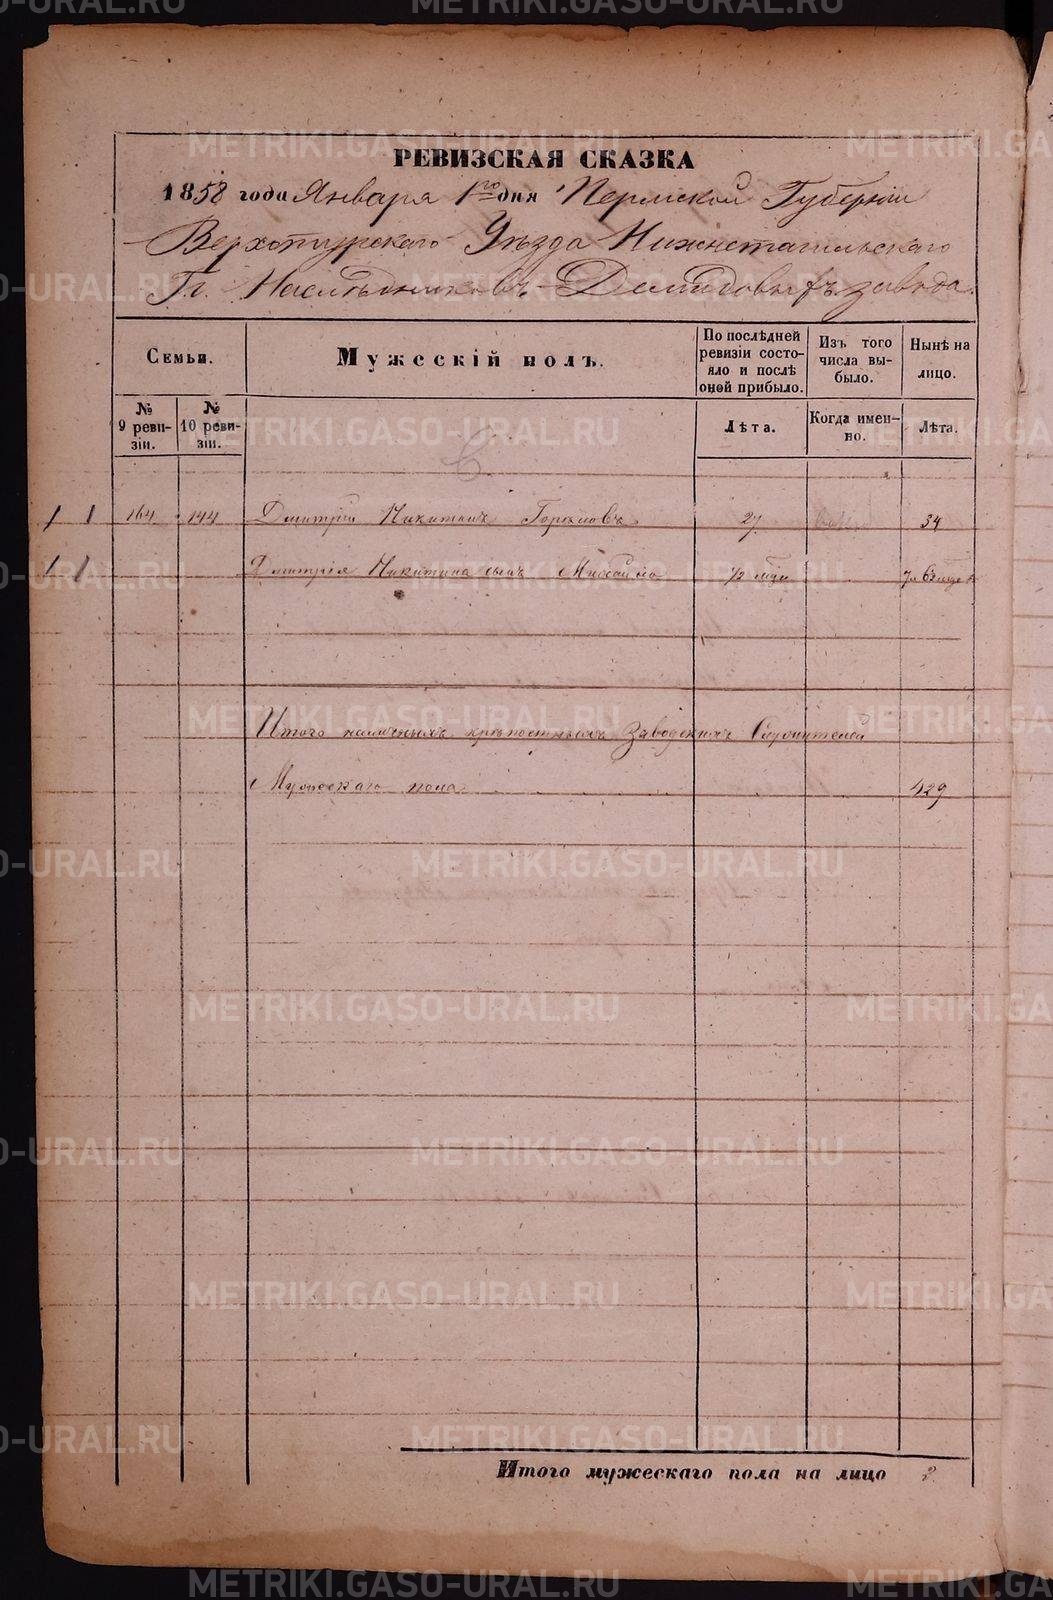 РЕВИЗСКАЯ СКАЗКА
1858 года Января 1го дня Пермской Губерніи
Верхотурскаго Уѣзда Нижнетагильскаго
Гг. Наслѣдниковъ Демидовыхъ завода.
Семьи.
Мужескій полъ.
По послѣдней ревизіи состояло и послѣ оной прибыло.
Изъ того числа выбыло.
Нынѣ на лицо.
№ 9 ревизіи.
№ 10 ревизіи.
Лѣта.
Когда именно.
Лѣта.
1 1 164 144 Дмитрій Никитинъ 27 34
1 1 Дмитрія Никитина сынъ Михайло 1/2
Итого наличныхъ крѣпостныхъ Заводскихъ
Мужескаго пола 429
Итого мужескаго пола на лицо 2
METRIKI.GASO-URAL.RU